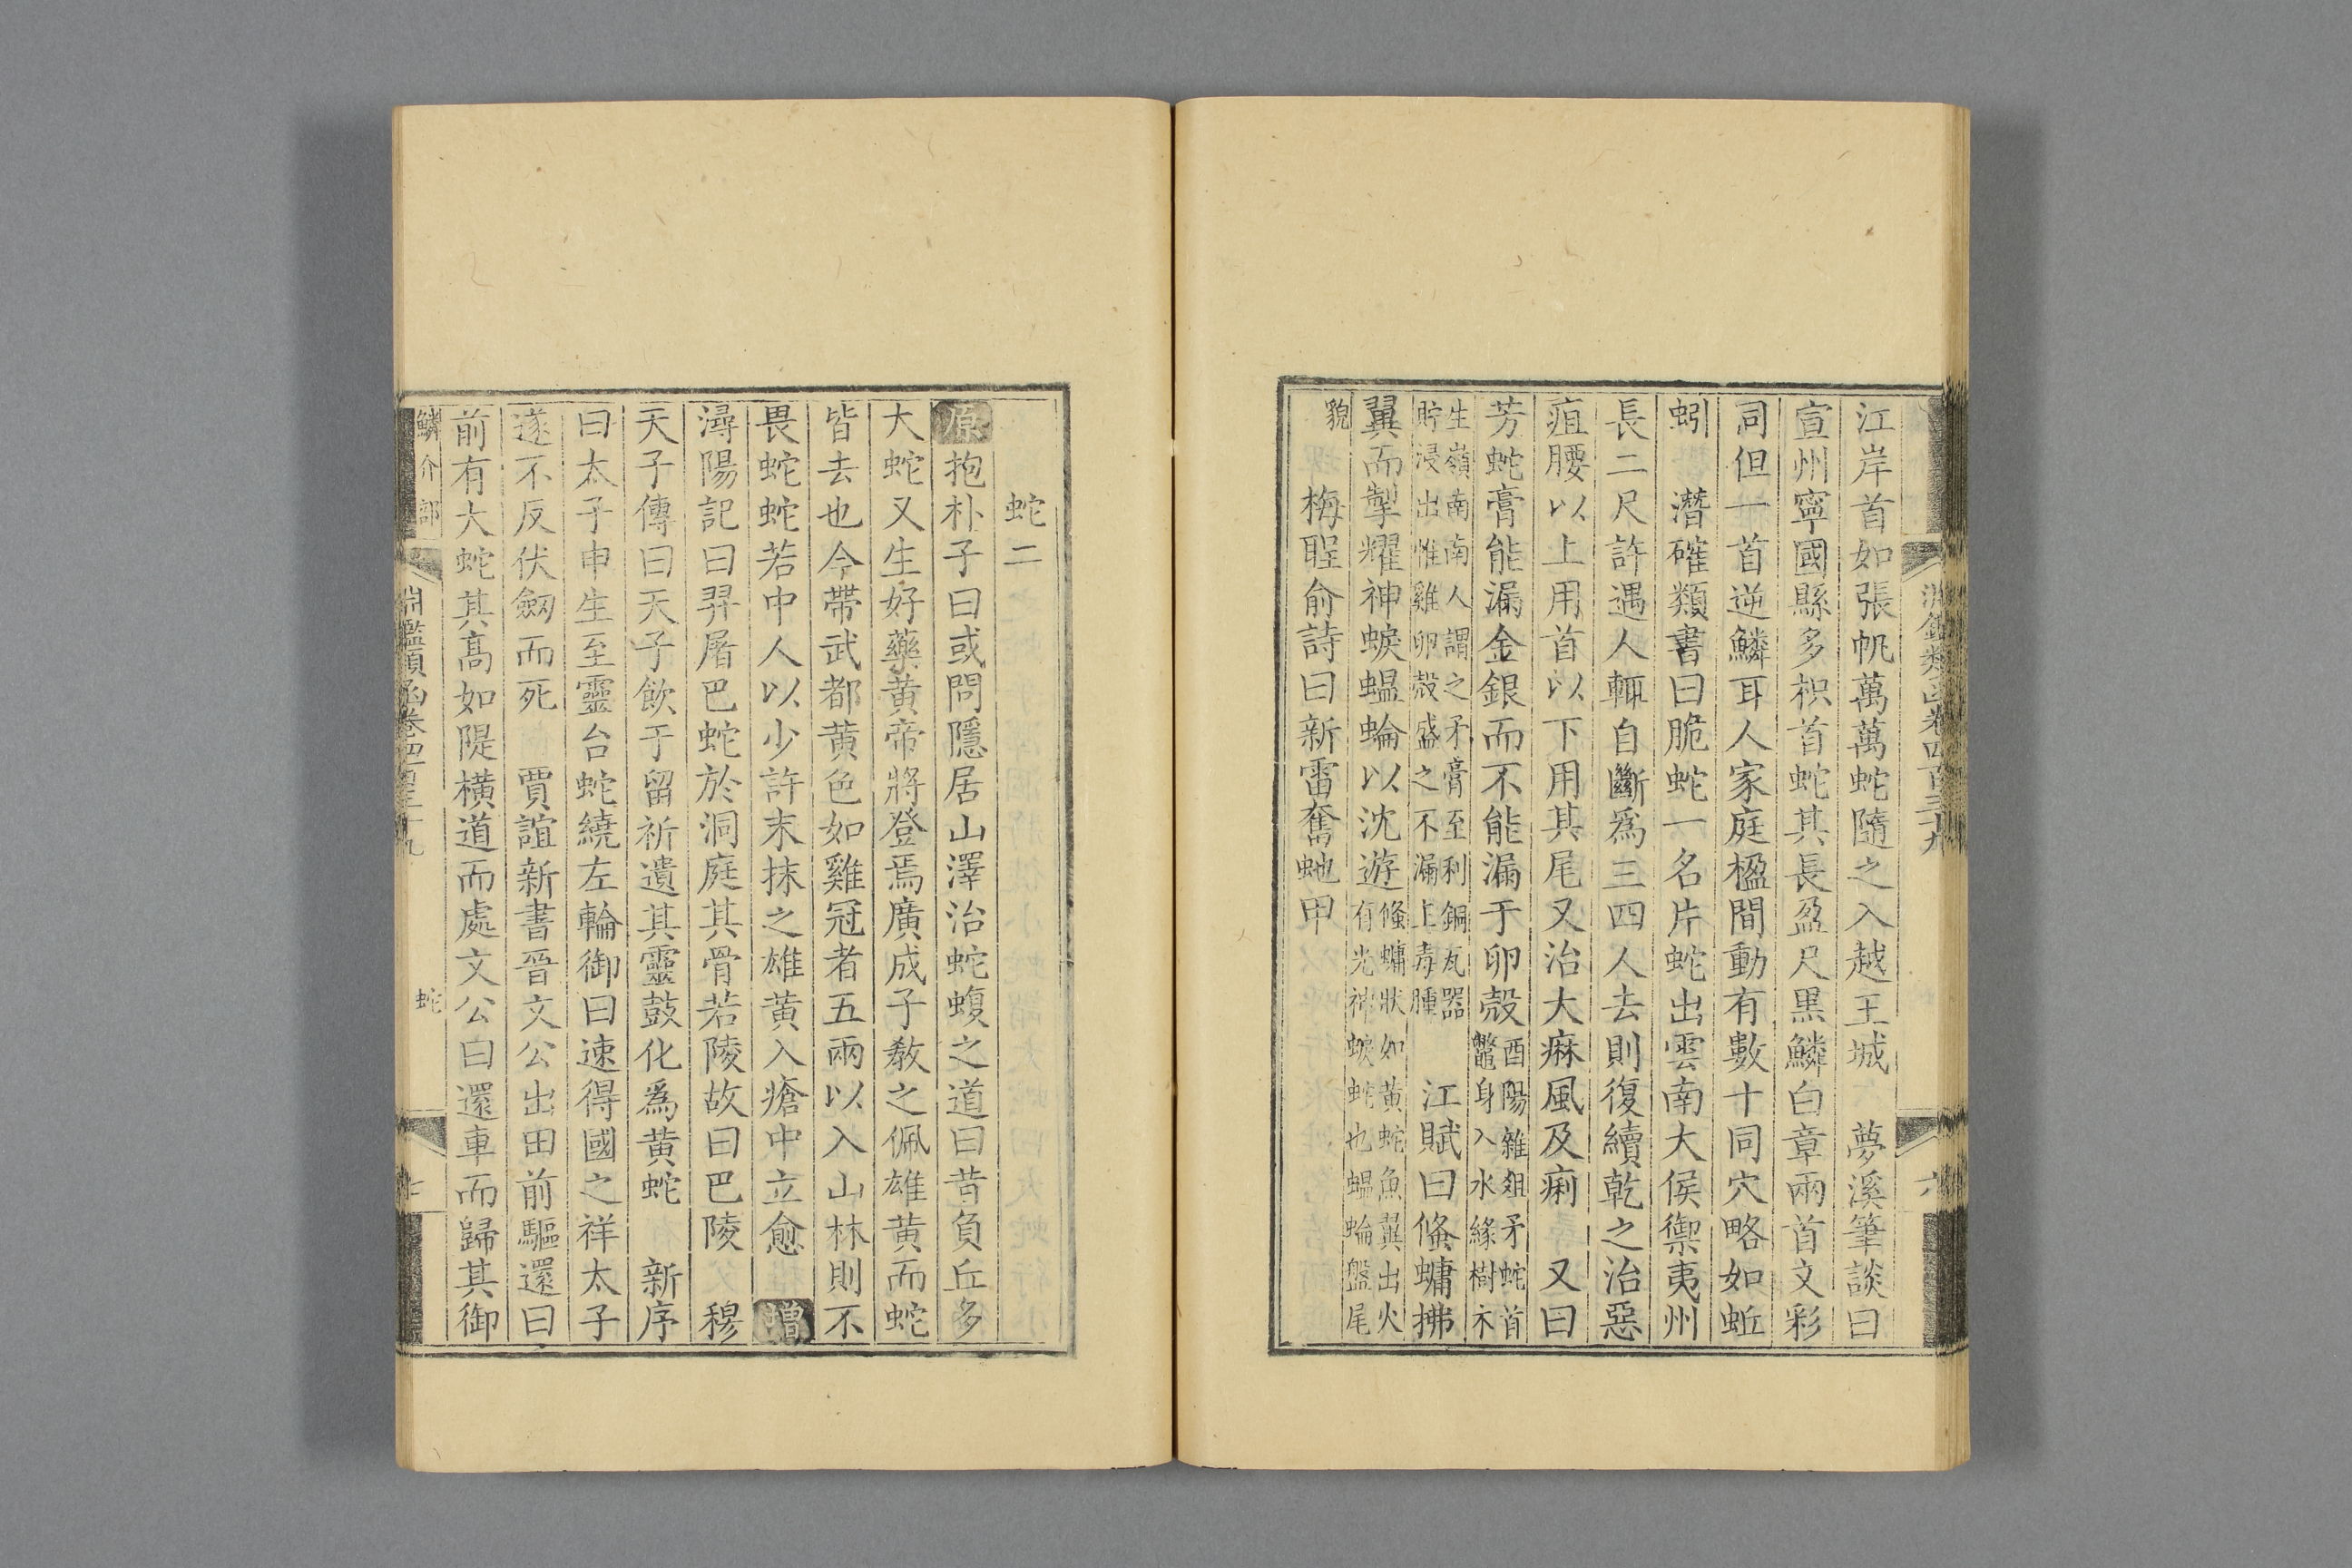 淵鑑類函卷四百三十九
六
江岸首如張帆萬萬蛇隨之入越王城　夢溪筆談曰
宣州寧國縣多枳首蛇其長盈尺黑鱗白章兩首文彩
同但一首逆鱗耳人家庭檻間動有數十同穴略如蚯
蚓　潛確類書曰脆蛇一名片蛇出雲南大侯禦夷州
長二尺許遇人輒自斷爲三四人去則復續乾之治惡
疽腰以上用首以下用其尾又治大痳風及痢　又曰
芳蛇膏能漏金銀而不能漏于卵殼
酉陽雜俎矛蛇首
鼈身入水緣樹木
生嶺南南人謂之矛膏至利銅瓦器
貯浸出惟雞卵殼盛之不漏上毒腫
江賦曰鯈䗤拂
翼而掣耀神蜧蝹蜦以沈遊
鯈䗤狀如黃蛇魚翼出火
有光神蜧蛇也蝹蜦盤尾
貌　梅聖俞詩曰新雷奮虵甲
蛇二
原抱朴子曰或問隱居山澤治蛇蝮之道曰昔負丘多
大蛇又生好藥黃帝將登焉廣成子教之佩雄黃而蛇
皆去也今帶武都黃色如雞冠者五兩以入山林則不
畏蛇蛇若中人以少許末抹之雄黃入瘡中立愈　增
潯陽記曰羿屠巴蛇於洞庭其骨若陵故曰巴陵　穆
天子傳曰天子飲于留祈遺其靈鼓化爲黃蛇　新序
曰太子申生至靈台蛇繞左輪御曰速得國之祥太子
遂不反伏劔而死　賈誼新書晉文公出田前驅還曰
前有大蛇其髙如隄橫道而處文公曰還車而歸其御
鱗介部
淵鑑類函卷四百三十九
蛇
七